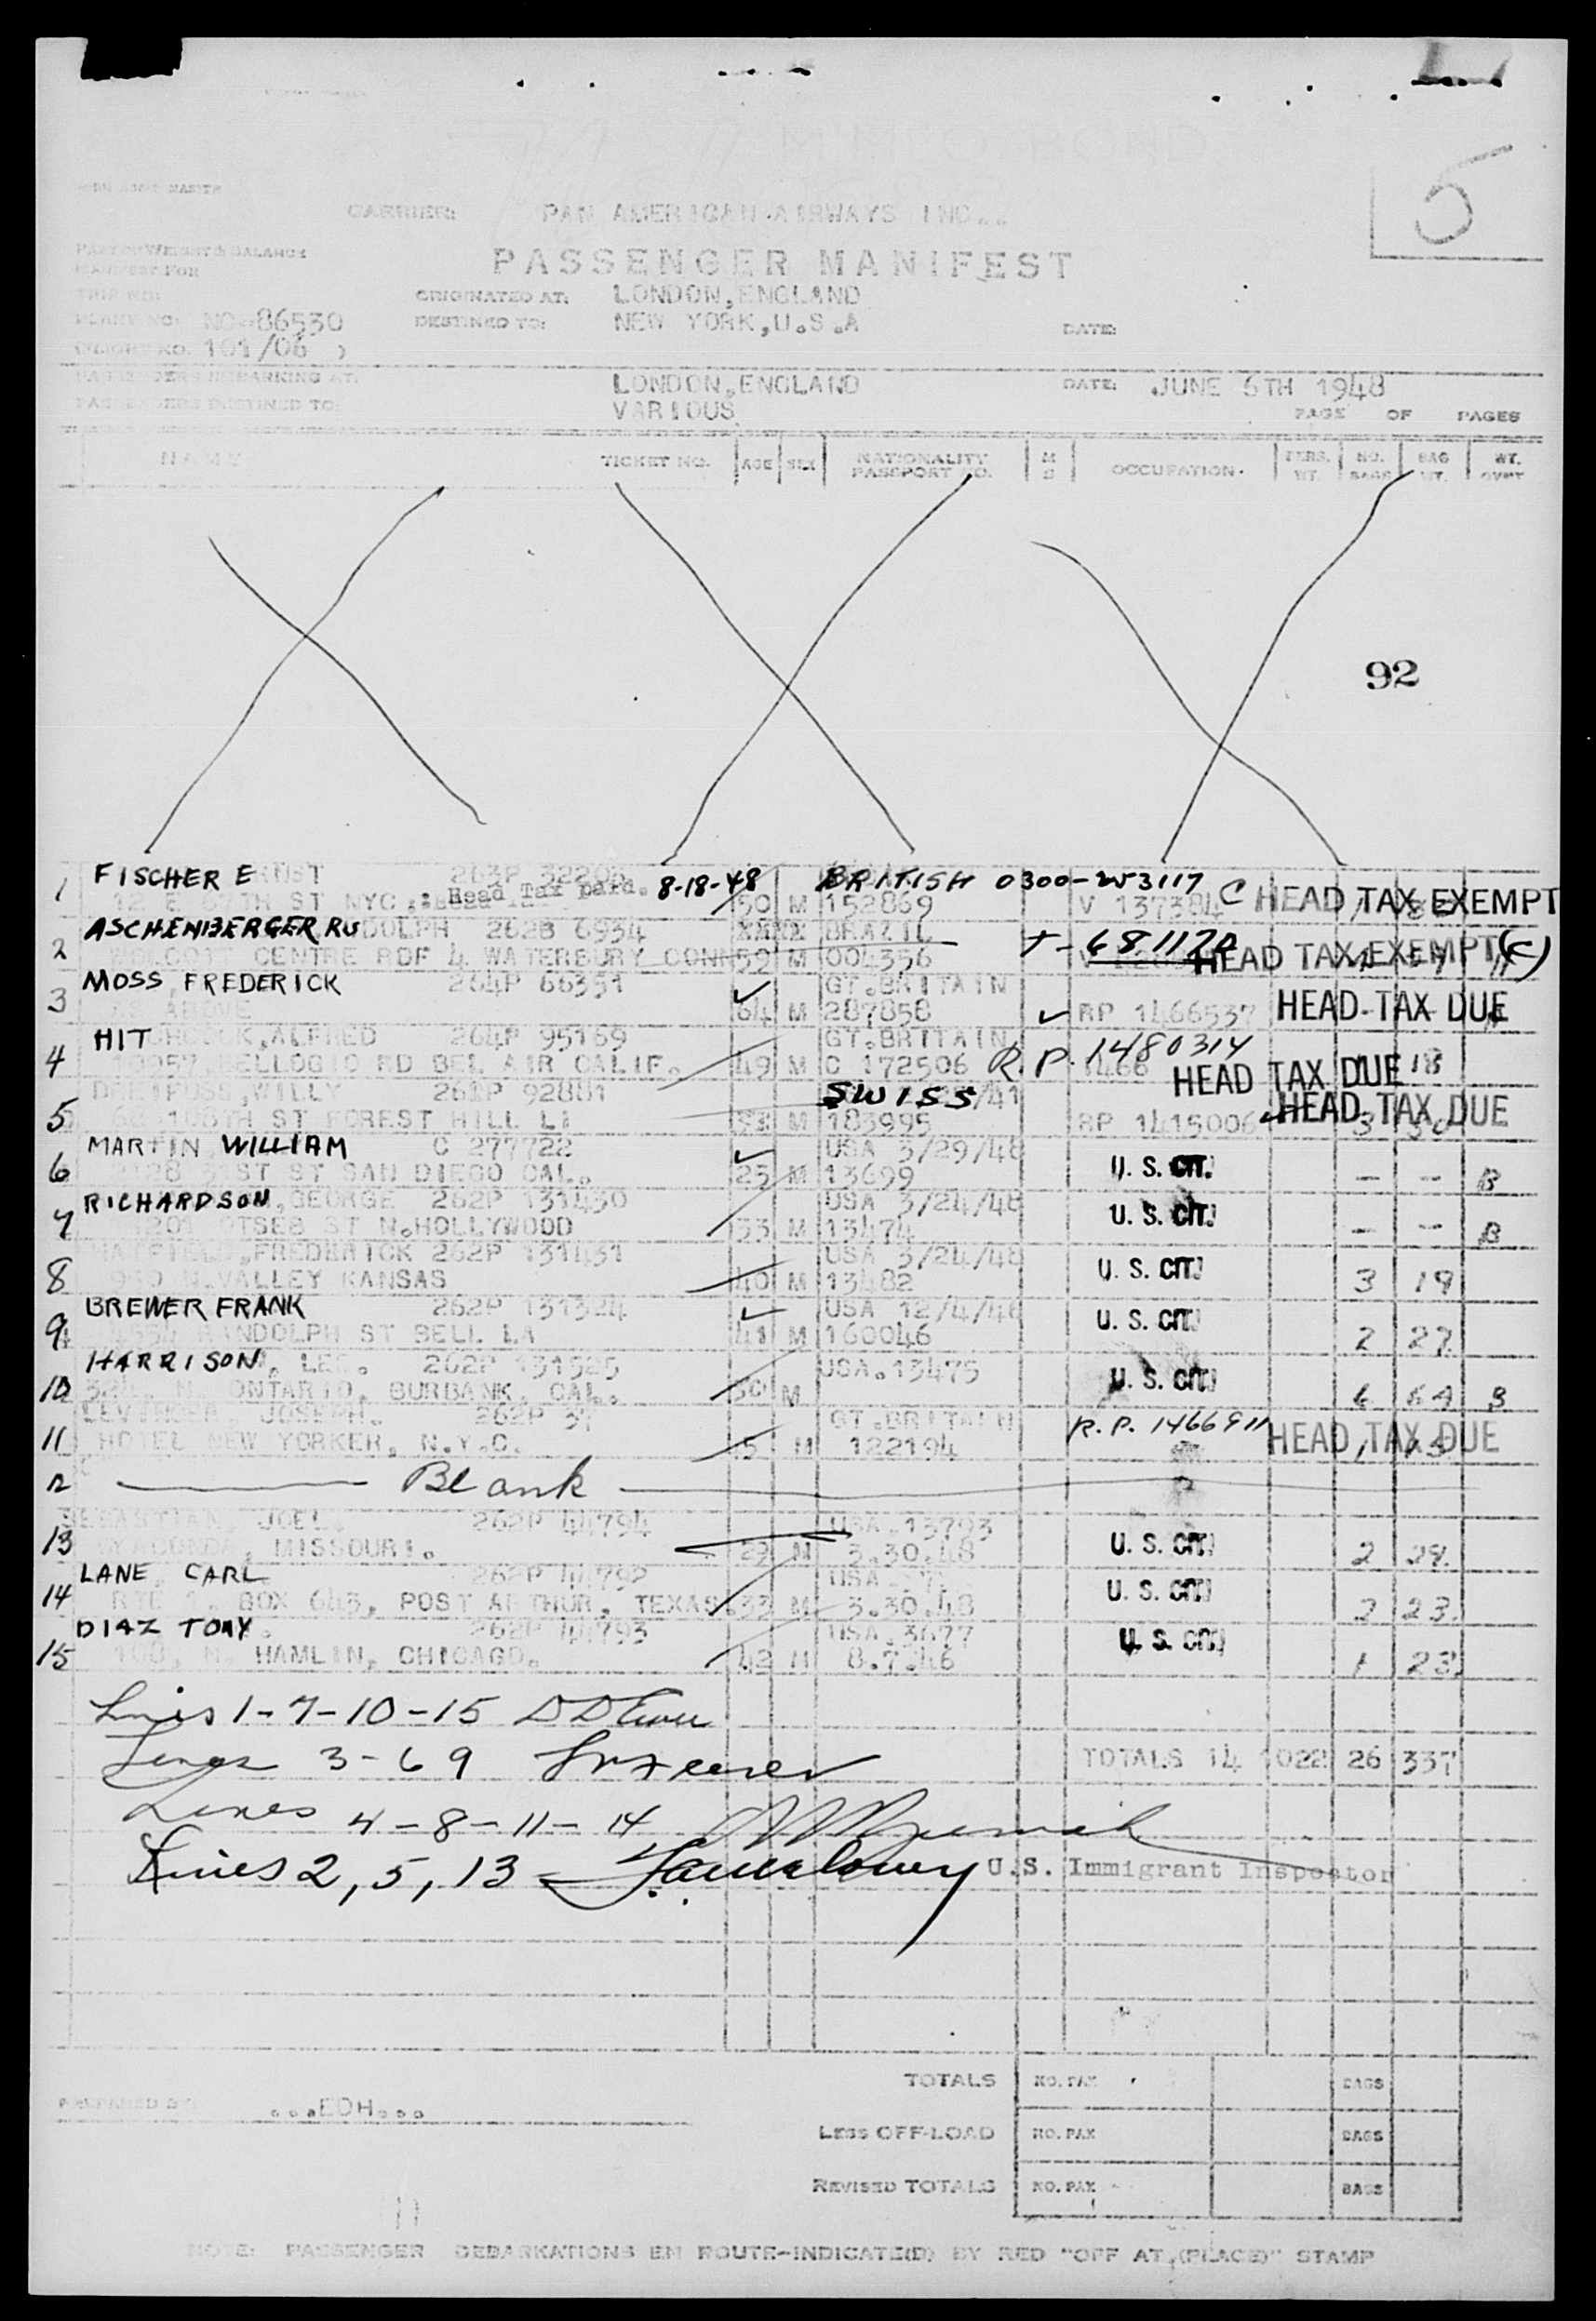 5
CARRIER: PAN AMERICAN AIRWAYS INC.
PART OF WEIGHT & BALANCE
MANIFEST FOR
PASSENGER MANIFEST
TRIP NO:
ORIGINATED AT: LONDON, ENGLAND
PLANE NO: NC-86530
DESTINED TO: NEW YORK, U.S.A
DATE:
(FLIGHT NO. 101/06 )
PASSENGERS EMBARKING AT: LONDON, ENGLAND
DATE: JUNE 6TH 1948
PASSENGERS DESTINED TO: VARIOUS
PAGE OF PAGES
NAME TICKET NO. AGE SEX NATIONALITY PASSPORT NO. M S OCCUPATION. PERS. WT. NO. BAGS BAG WT. WT. OVWT
92
1 FISCHER ERNST 263P Head Tax paid. 8-18-48 BRITISH 0300-
TH ST NYC 50 M 152869 V 137384 C HEAD TAX EXEMPT
ASCHENBERGER RUDOLPH 262B 6934 XXXX BRAZIL T-
2 CENTRE RDF 4 WATERBURY CONN 59 M 004356 HEAD TAX EXEMPT (C)
MOSS FREDERICK 264P 66351 GT.BRITAIN
3 ABOVE 64 M 287858 RP 1466537 HEAD TAX DUE
HITCHCOCK, ALFRED 264P 95169 GT.BRITAIN
4 10957 BELLOGIO RD BEL AIR CALIF. 49 M C 172506 R.P. 1480314 HEAD TAX DUE 18
WILLY 261P 92881 SWISS /41
5 TH ST FOREST HILL LI M 183995 RP 1415006 HEAD TAX DUE 3
MARTIN WILLIAM C 277722 USA 3/29/48
6 ST ST SAN DIEGO CAL. 25 M 13699 U. S. CIT. - - B
RICHARDSON, GEORGE 262P 131430 USA 3/24/48
7 ST N.HOLLYWOOD 33 M 13474 U. S. CIT. - - B
FREDERICK 262P 131431 USA 3/24/48
8 N.VALLEY KANSAS 40 M 13482 U. S. CIT. 3 19
BREWER FRANK 262P 131324 USA 12/4/46
9 RANDOLPH ST BELL LA 41 M 160046 U. S. CIT. 2 27
HARRISON, LEE. 262P 131525 USA.13475
10 N. ONTARIO, BURBANK, CAL. M U. S. CIT. 6 64 B
JOSEPH. 262P GT.BRITAIN
11 HOTEL NEW YORKER, N.Y.C. M 122194 R.P. 1466911 HEAD TAX DUE 1
12 Blank
SEBASTIAN, JOEL. 262P 44794 USA.13793
13 WYACONDA, MISSOURI. 29 M 3.30.48 U. S. CIT. 2 29
LANE CARL 262P 44792 USA
14 RTE 1, BOX 643, PORT ARTHUR, TEXAS. 33 M 3.30.48 U. S. CIT. 2 23.
DIAZ TONY. 262P 44793 USA.3677
15 108, N. HAMLIN, CHICAGO. 42 M 8.7.46 U. S. CIT. 1 23.
Lines 1-7-10-15
Lines 3-6 9
TOTALS 14 1022 26 337
Lines 4-8-11-14
Lines 2, 5, 13 - U.S. Immigrant Inspector
TOTALS NO. PAX BAGS
PREPARED BY ...EDH...
LESS OFF-LOAD NO. PAX BAGS
REVISED TOTALS NO. PAX BAGS
NOTE: PASSENGER DEBARKATIONS EN ROUTE-INDICATE(D) BY RED "OFF AT (PLACE)" STAMP